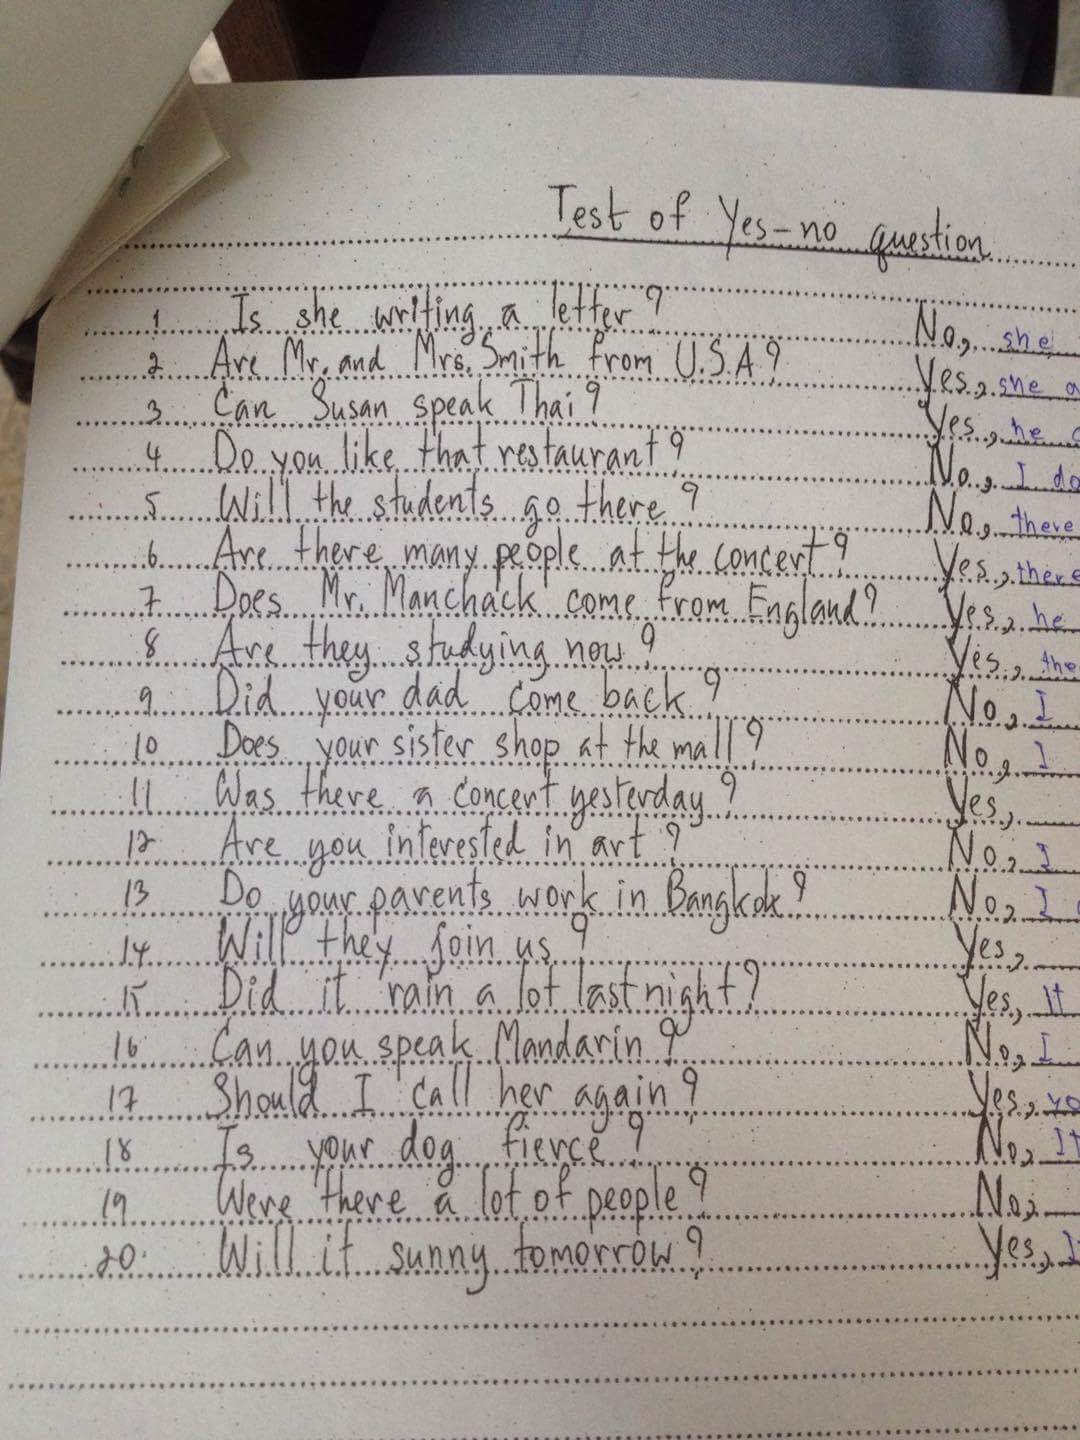 Test of Yes-no question
1 Is she writing a letter? No, she
2 Are Mr. and Mrs. Smith from U.S.A? Yes, she a
3 Can Susan speak Thai? Yes, he
4 Do you like that restaurant? No, I do
5 Will the students go there? No, there
6 Are there many people at the concert? Yes, there
7 Does Mr. Manchack come from England? Yes, he
8 Are they studying now? Yes, the
9 Did your dad come back? No, I
10 Does your sister shop at the mall? No, I
11 Was there a concert yesterday? Yes,
12 Are you interested in art? No, I
13 Do your parents work in Bangkok? No, I
14 Will they join us? Yes,
15 Did it rain a lot last night? Yes, It
16 Can you speak Mandarin? No, I
17 Should I call her again? Yes, yo
18 Is your dog fierce? No, It
19 Were there a lot of people? No,
20. Will it sunny tomorrow? Yes, I